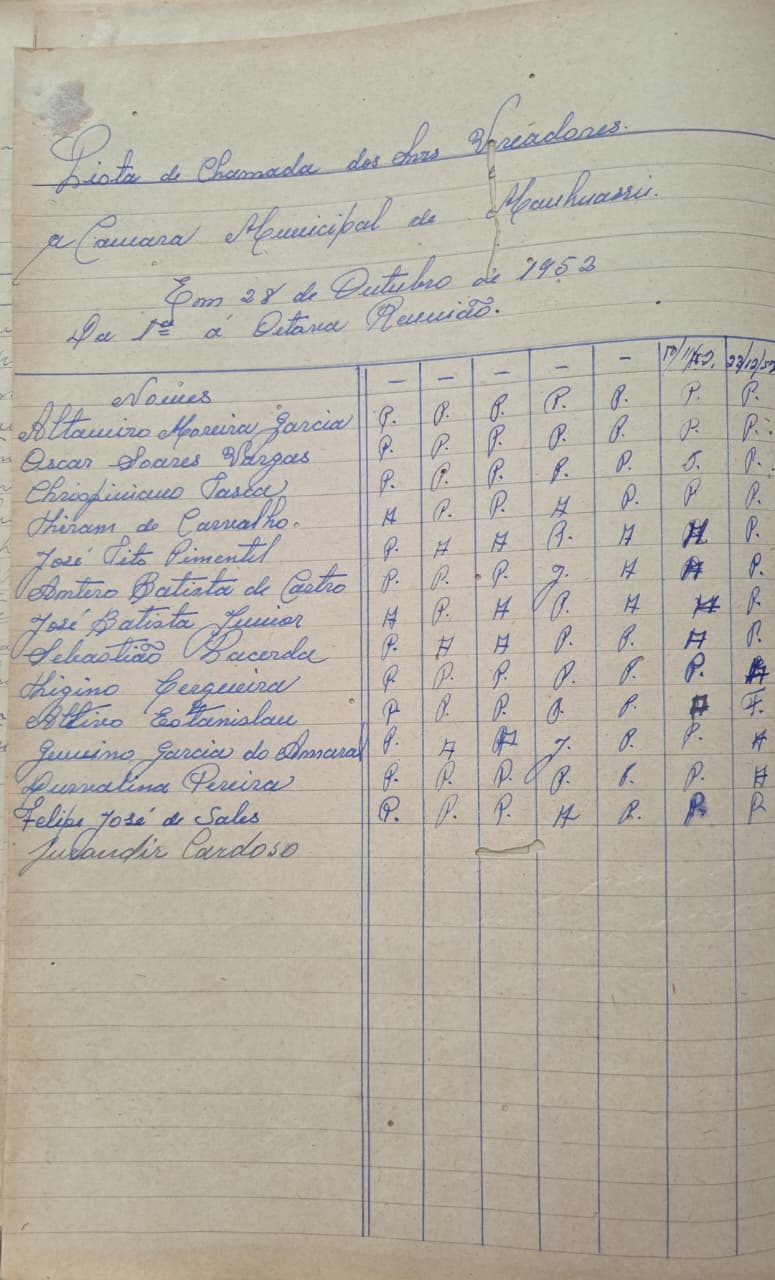 Lista de Chamada dos Snrs Vereadores.
a Camara Municipal de Manhuassú.
Em 28 de Outubro de 1952
Da 1ª á Oitava Reunião.
Nomes - - - - - 10/11/52. 23/12/52
Altamiro Moreira Garcia P. P. P. P. P. P. P.
Oscar Soares Vargas P. P. P. P. P. P. P.
Chrispiniano Tasca P. P. P. P. P. J. P.
Hiram de Carvalho. A P. P. A P. P P.
José Tito Pimentel P. A A P. A A P.
Antero Batista de Castro P. P. P. J. A A P.
José Batista Junior A P. A P. A A P.
Sebastião Lacerda P. A A P. P. A P.
Higino Cerqueira P P. P. P. P. P. A
Altivo Estanislau P P. P. P. P. A F.
Genuino Garcia do Amaral P. A A J. P. P. A
Durvalina Pereira P. P. P. P. P. P. A
Felipe José de Sales P. P. P. A P. P P
Jurandir Cardoso